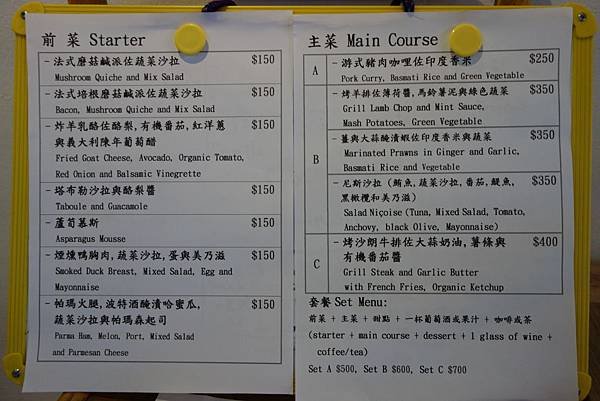 前 菜 Starter
- 法式磨菇鹹派佐蔬菜沙拉 $150
Mushroom Quiche and Mix Salad
- 法式培根磨菇鹹派佐蔬菜沙拉 $150
Bacon, Mushroom Quiche and Mix Salad
- 炸羊乳酪佐酪梨,有機番茄,紅洋蔥 $150
與義大利陳年葡萄醋
Fried Goat Cheese, Avocado, Organic Tomato,
Red Onion and Balsamic Vinegrette
- 塔布勒沙拉與酪梨醬 $150
Taboule and Guacamole
- 蘆筍慕斯 $150
Asparagus Mousse
- 煙燻鴨胸肉,蔬菜沙拉,蛋與美乃滋 $150
Smoked Duck Breast, Mixed Salad, Egg and
Mayonnaise
- 帕瑪火腿,波特酒醃漬哈蜜瓜, $150
蔬菜沙拉與帕瑪森起司
Parma Ham, Melon, Port, Mixed Salad
and Parmesan Cheese
主菜 Main Course
A - 游式豬肉咖哩佐印度香米 $250
Pork Curry, Basmati Rice and Green Vegetable
B - 烤羊排佐薄荷醬,馬鈴薯泥與綠色蔬菜 $350
Grill Lamb Chop and Mint Sauce,
Mash Potatoes, Green Vegetable
- 薑與大蒜醃漬蝦佐印度香米與蔬菜 $350
Marinated Prawns in Ginger and Garlic,
Basmati Rice and Vegetable
- 尼斯沙拉 (鮪魚,蔬菜沙拉,番茄,鯷魚, $350
黑橄欖和美乃滋)
Salad Niçoise (Tuna, Mixed Salad, Tomato,
Anchovy, black Olive, Mayonnaise)
C - 烤沙朗牛排佐大蒜奶油,薯條與 $400
有機番茄醬
Grill Steak and Garlic Butter
with French Fries, Organic Ketchup
套餐 Set Menu:
前菜 + 主菜 + 甜點 + 一杯葡萄酒或果汁 + 咖啡或茶
(starter + main course + dessert + 1 glass of wine +
coffee/tea)
Set A $500, Set B $600, Set C $700